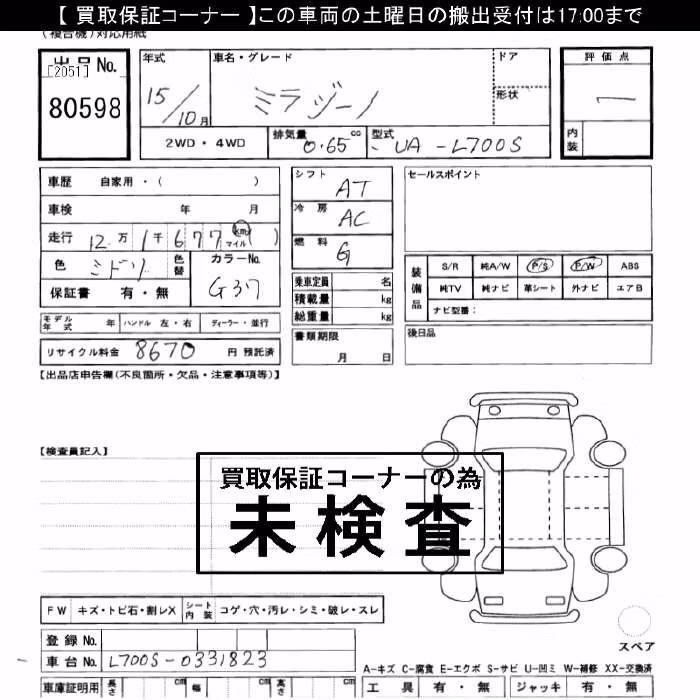 【 買取保証コーナー 】この車両の土曜日の搬出受付は17:00まで
(複合機)対応用紙
出品 No.
[2051]
80598
年式
15/10月
車名・グレード
ミラジーノ
ドア
形状
評価点
ー
内装
2WD・4WD
排気量
0.65 cc
型式
UA-L700S
車歴 自家用・( )
車検 年 月
走行 12万1千677 km マイル ( )
色 ミドリ
色替
カラーNo.
G37
保証書 有・無
シフト
AT
冷房
AC
燃料
G
乗車定員 名
積載量 kg
総重量 kg
書類期限
月 日
セールスポイント
装備品
S/R 純A/W P/S P/W ABS
純TV 純ナビ 革シート 外ナビ エアB
ナビ型番:
後日品
モデル年式 年 ハンドル 左・右 ディーラー・並行
リサイクル料金 8670 円 預託済
【出品店申告欄(不良箇所・欠品・注意事項等)】
【検査員記入】
買取保証コーナーの為
未検査
FW キズ・トビ石・割レX
シート内装 コゲ・穴・汚レ・シミ・破レ・スレ
登録 No.
車台 No. L700S-0331823
車庫証明用 長さ cm 幅 cm 高さ cm
スペア
A-キズ C-腐食 E-エクボ S-サビ U-凹ミ W-補修 XX-交換済
工具 有・無 ジャッキ 有・無